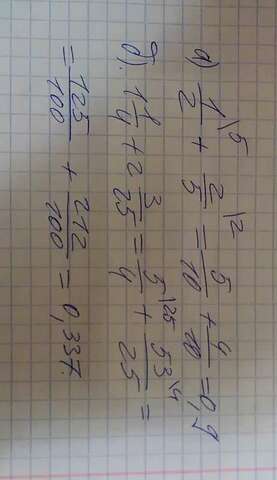 а) 1/2 \5 + 2/5 \2 = 5/10 + 4/10 = 0,9
д). 1 1/4 + 2 3/25 = 5/4 \25 + 53/25 \4 =
= 125/100 + 212/100 = 0,337.